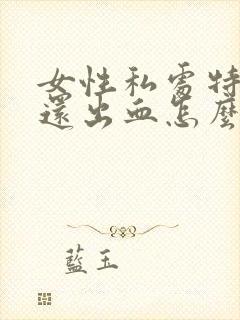 女性私處特
還出血怎麼
藍玉